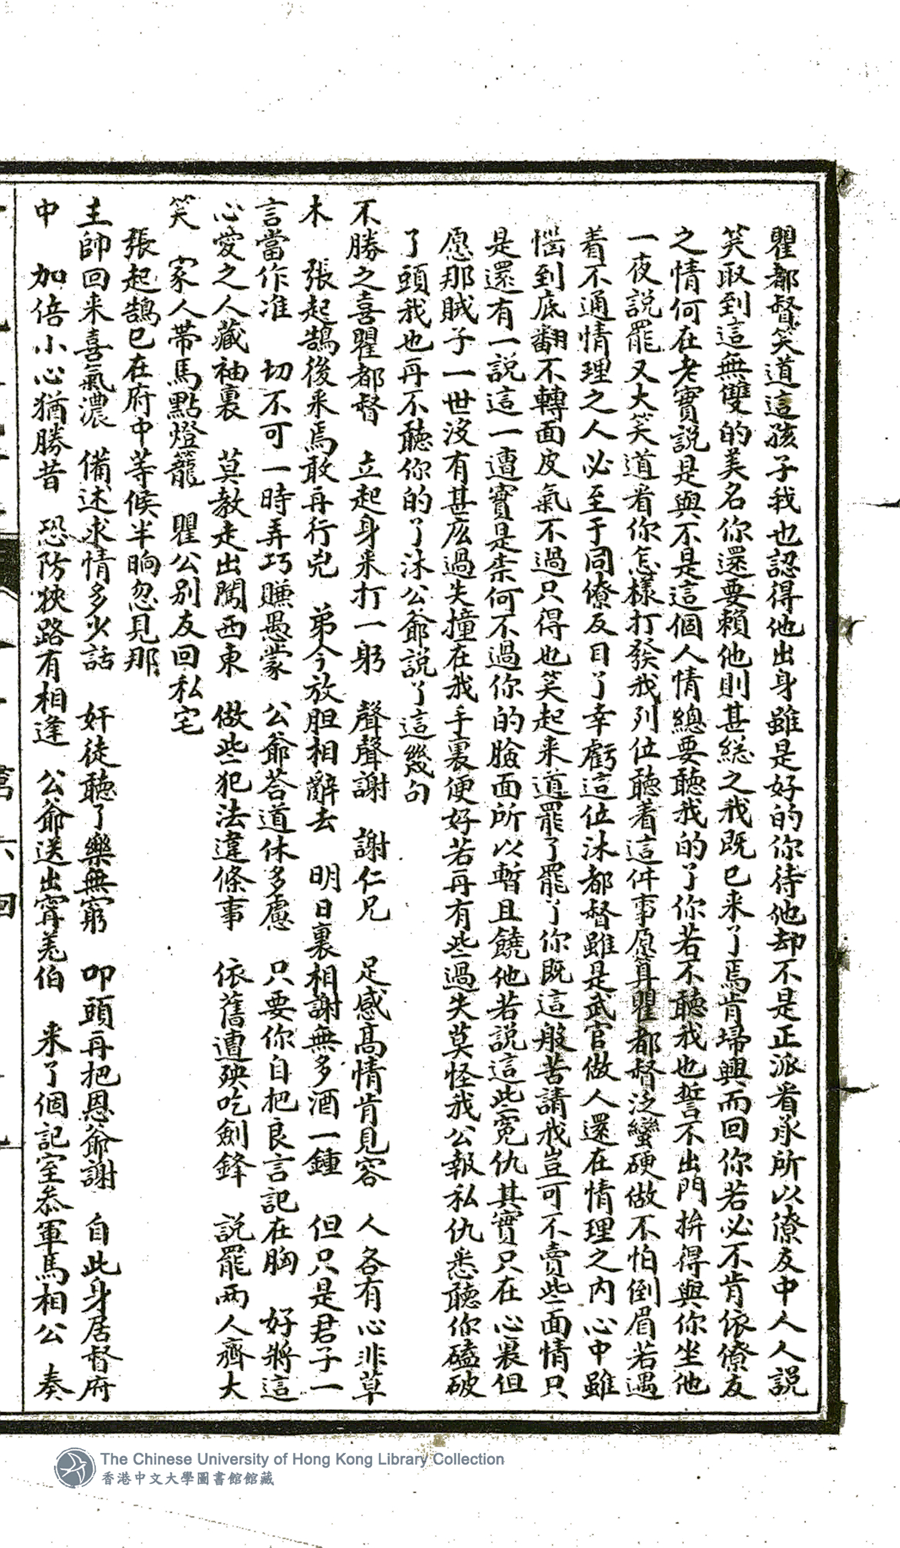 瞿都督笑道這孩子我也認得他出身雖是好的你待他却不是正派看承所以僚友中人人説
笑取到這無雙的美名你還要賴他則甚総之我既已来了焉肯埽興而回你若必不肯依僚友
之情何在老實説是與不是這個人情總要聽我的了你若不聽我也誓不出門拚得與你坐他
一夜説罷又大笑道看你怎樣打發我列位聽着這件事愿算瞿都督泛蠻硬做不怕倒眉若遇
着不通情理之人必至于同僚反目了幸虧這位沐都督雖是武官做人還在情理之内心中雖
惱到底翻不轉面皮氣不過只得也笑起来道罷了罷了你既這般苦請我豈可不賣些面情只
是還有一説這一遭實是柰何不過你的臉面所以暫且饒他若説這些寃仇其實只在心裏但
愿那賊子一世没有甚庅過失撞在我手裏便好若再有些過失莫怪我公報私仇悉聽你磕破
了頭我也再不聽你的了沐公爺説了這幾句
不勝之喜瞿都督　立起身来打一躬　聲聲謝　謝仁兄　足感高情肯見容　人各有心非草
木　張起鵠後来焉敢再行兇　弟今放胆相辭去　明日裏相謝無多酒一鍾　但只是君子一
言當作准　切不可一時弄巧賺愚蒙　公爺荅道休多慮　只要你自把良言記在胸　好將這
心愛之人藏袖裏　莫教走出閙西東　做些犯法違條事　依舊遭殃吃劍鋒　説罷兩人齊大
笑　家人帶馬點燈籠　瞿公别友回私宅
張起鵠已在府中等候半晌忽見那
主帥回来喜氣濃　備述求情多少話　奸徒聽了樂無窮　叩頭再把恩爺謝　自此身居督府
中　加倍小心猶勝昔　恐防狹路有相逢　公爺送出寗羌伯　来了個記室叅軍馬相公　奏
第六回
The Chinese University of Hong Kong Library Collection
香港中文大學圖書館館藏